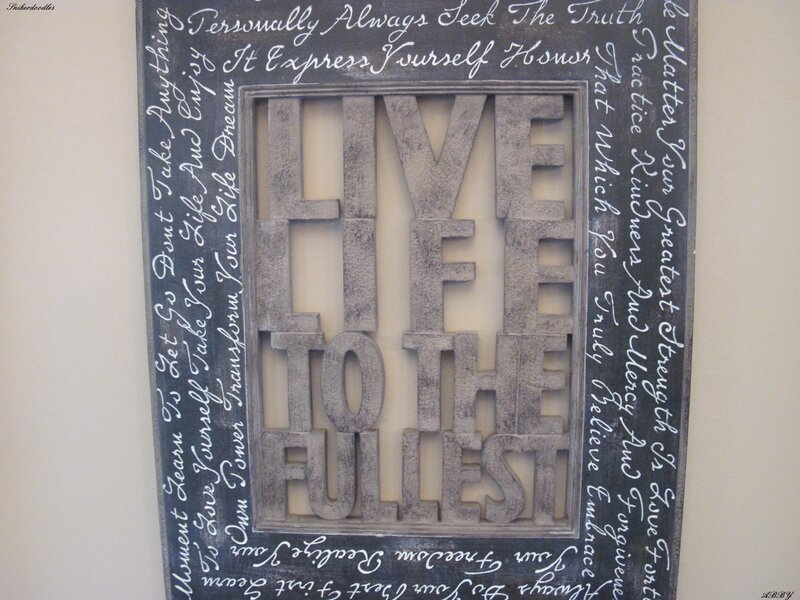 Snikerdoodles
Personally Always Seek The Truth
It Express Yourself Honor
Matter Your Greatest Strength Is Love
Practice Kindness And Mercy And
That Which You Truly Believe Embrace
Always Do Your Best First Learn
Your Freedom Realize Your
Moment Learn To Let Go Dont Take Anything
To Love Yourself Take Your Life And Enjoy
Own Power Transform Your Life Dream
LIVE
LIFE
TO THE
FULLEST
ABBY